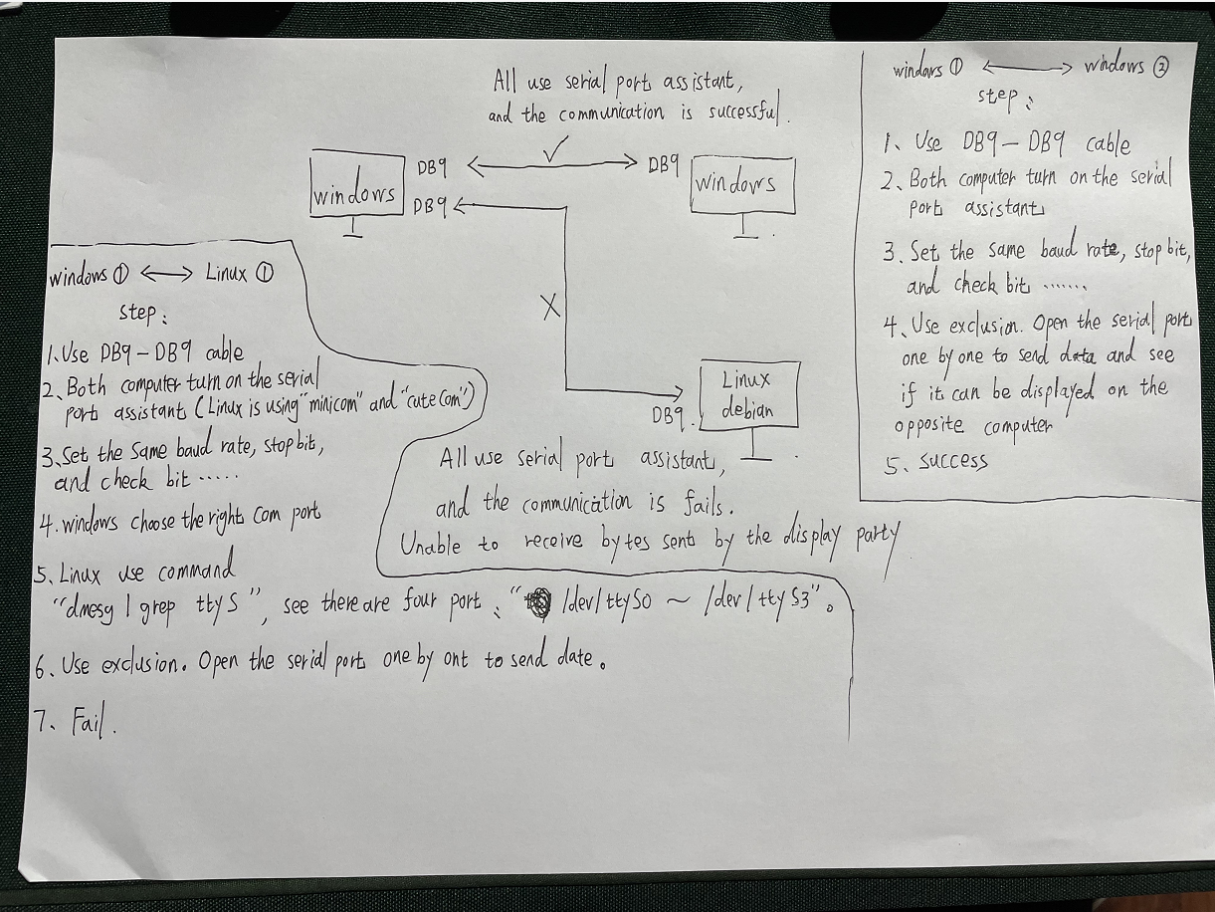 All use serial port assistant,
and the communication is successful.
windows
DB9
DB9
DB9
windows
Linux
debian
DB9.
All use serial port assistant,
and the communication is fails.
Unable to receive bytes sent by the display party
windows ① ⟷ Linux ①
step:
1、Use DB9-DB9 cable
2、Both computer turn on the serial
port assistant (Linux is using "minicom" and "cutecom")
3、Set the same baud rate, stop bit,
and check bit ·····
4. windows choose the right com port
5、Linux use command
"dmesg | grep ttyS", see there are four port、"/dev/ttyS0 ~ /dev/ttyS3"。
6、Use exclusion. Open the serial port one by ont to send date。
7、Fail.
windows ① ⟷ windows ②
step:
1、Use DB9-DB9 cable
2、Both computer turn on the serial
port assistant
3. Set the same baud rate, stop bit,
and check bit ·······
4、Use exclusion. Open the serial port
one by one to send data and see
if it can be displayed on the
opposite computer
5、success